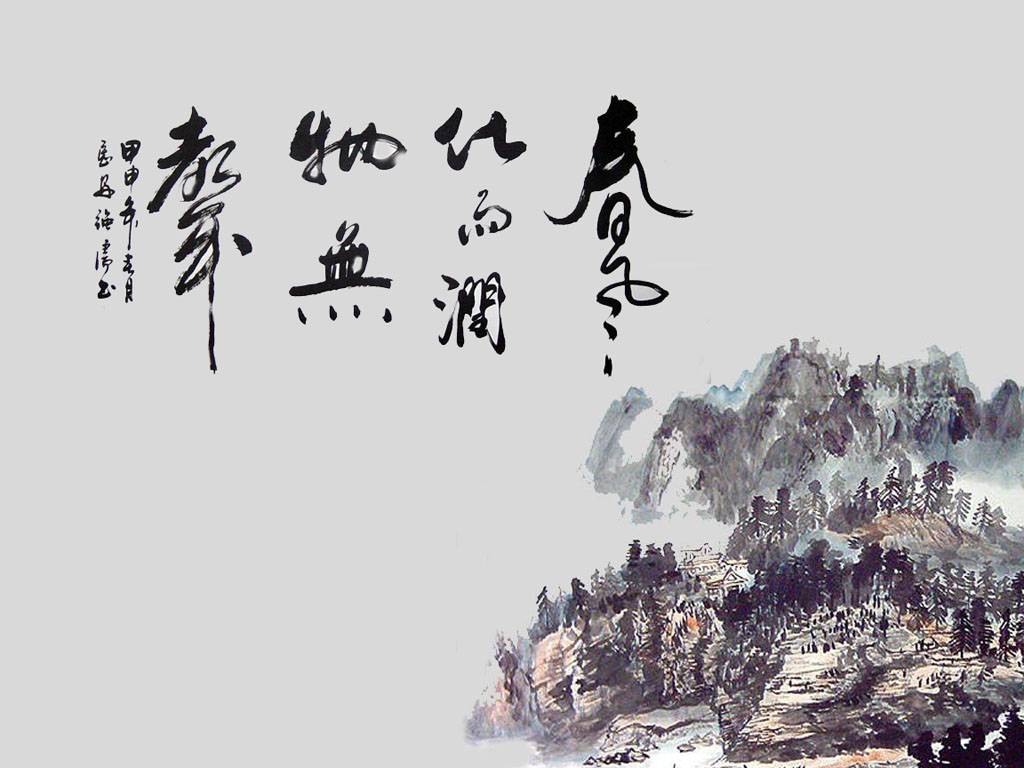 春風
化雨潤
物無
聲
甲申年春月
書